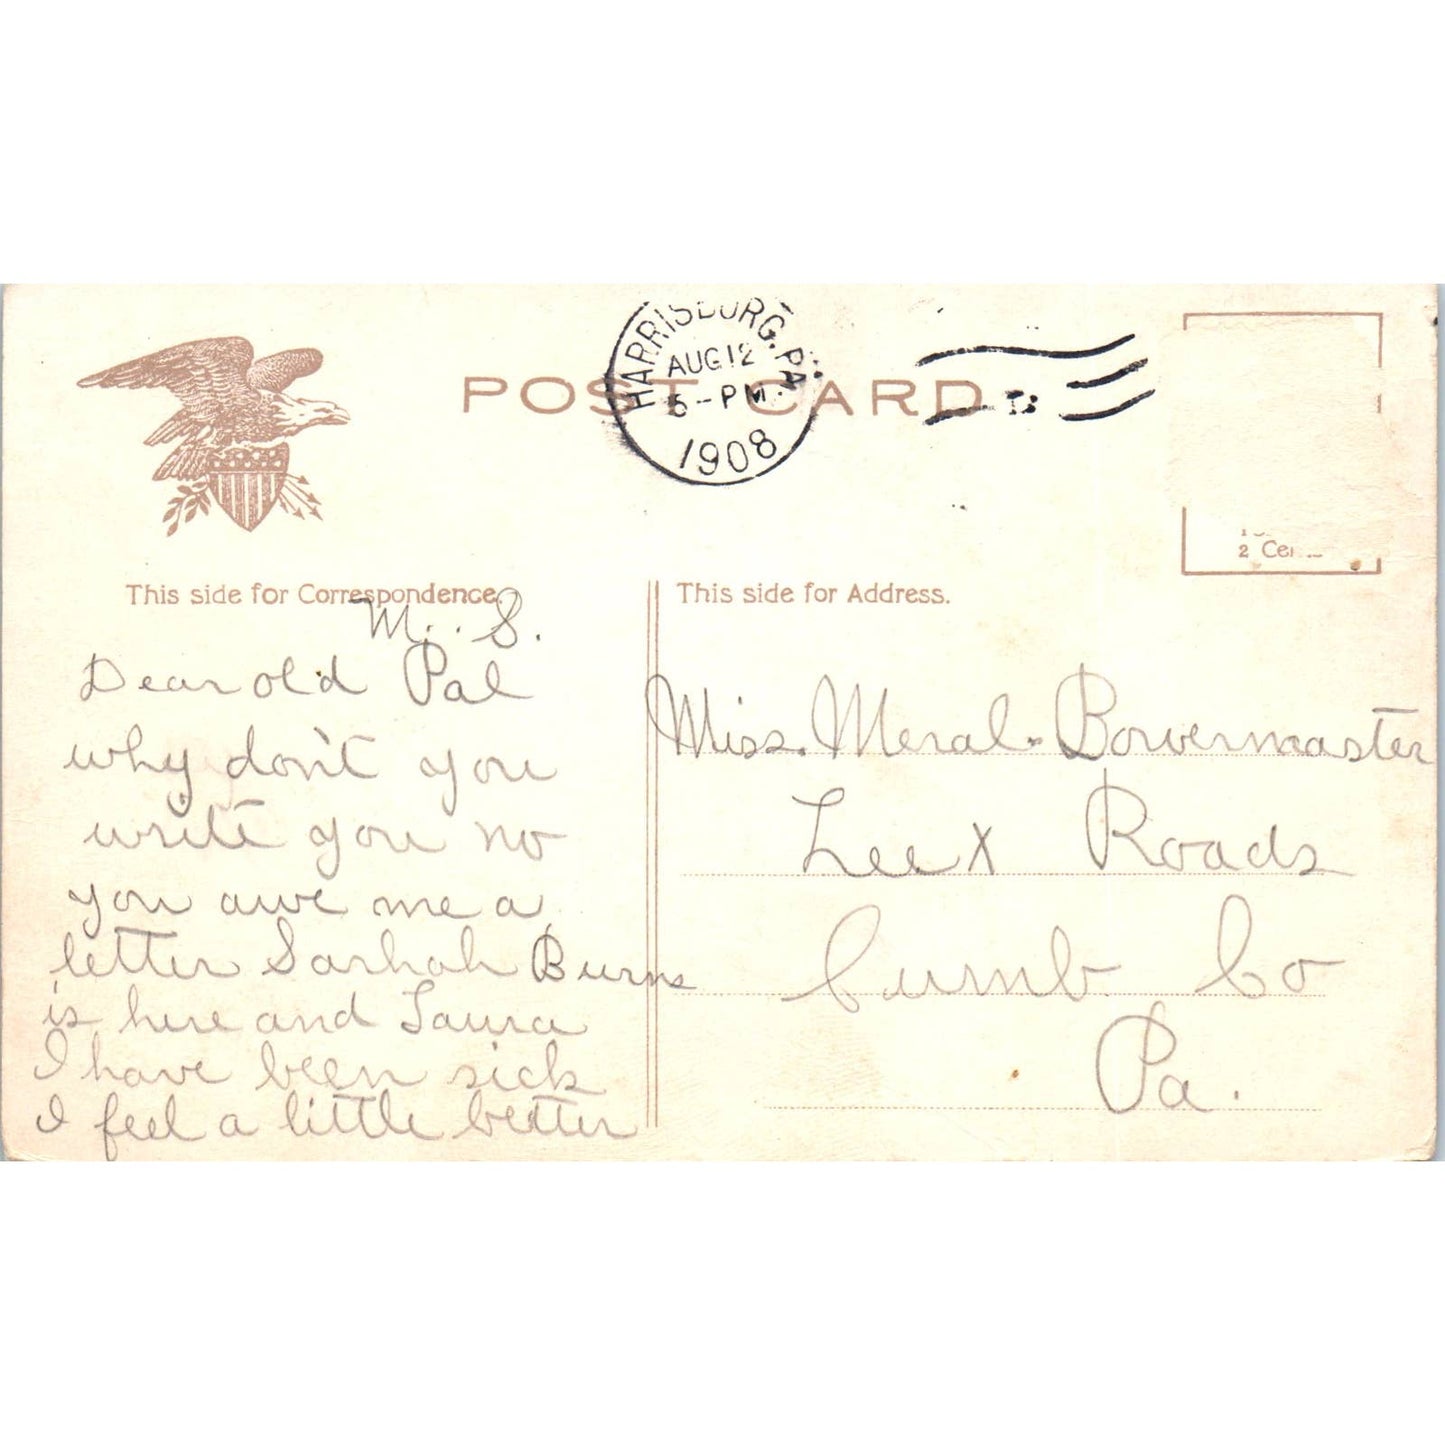 HARRISBURG, PA.
AUG 12
5-PM
1908
POST CARD
2 Ce
This side for Correspondence.
This side for Address.
M. S.
Dear old Pal
why don't you
write you no
you awe me a
letter Sarhah Burns
is here and Laura
I have been sick
I feel a little better
Miss. Meral Bowermaster
Lee X Roads
Cumb Co
Pa.